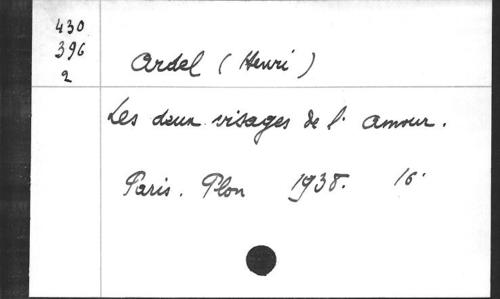 430
396
2
Ardel (Henri)
Les deux visages de l'amour.
Paris. Plon 1938. 16°